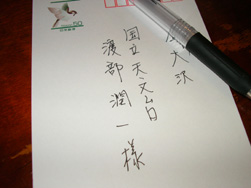 大沢
国立天文台
渡部潤一様
50